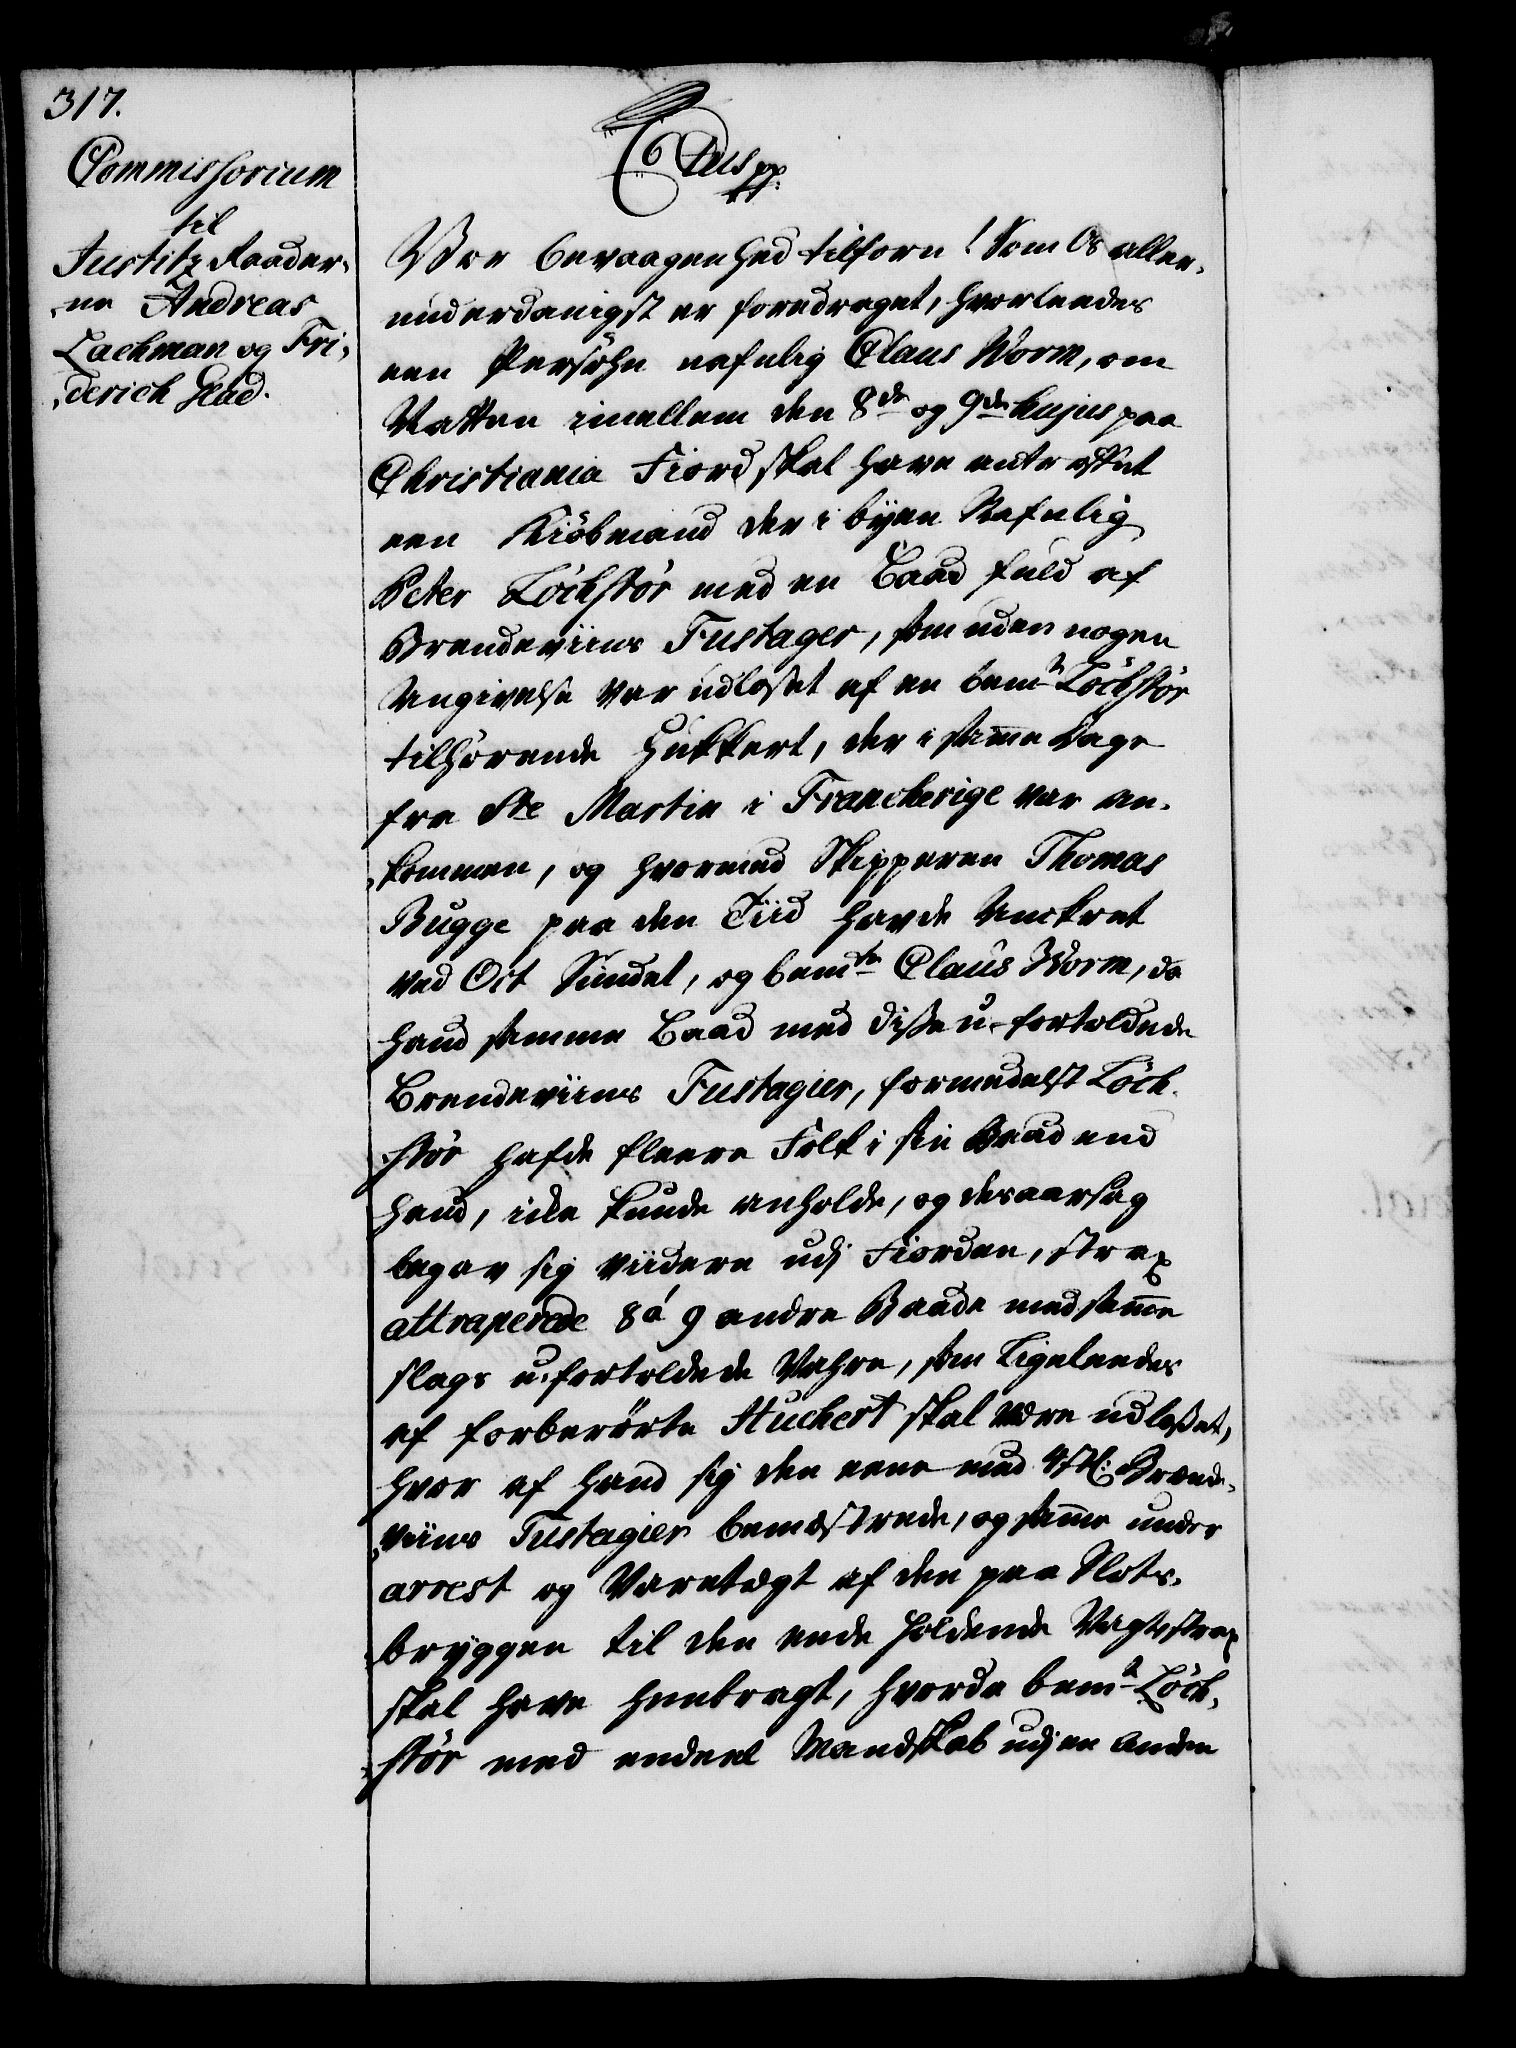 317.
Commissorium
til
Justitz Raader-
ne Andreas
Lachman og Fri-
derich Glad.
C6tus pp.
Vor bevaagenhed tilforn! Som Os aller-
underdanigst er foredraget, hvorleedes
een Persohn nafnlig Claus Worm, om
Natten imellem den 8de og 9de hujus paa
Christiania Fiord skal have antroffet
een Kiöbmand der i byen Nafnlig
Peter Löchstör med en Baad fuld af
Brendeviins Fustager, som uden nogen
Angivelse var udlosset af en bemte Löchstör
tilhörende Hukkert, der i samme dage
fra Ste Martin i Franckerige var an-
kommen, og hvormed Skipperen Thomas
Bugge paa den Tiid havde Anckret
ved Ort Sundet, og bemdte Claus Worm, da
hand samme Baad med disse u-fortoldede
Brendeviins Fustagier, formedelst Löch-
stör hafde fleere Folk i sin Baad end
hand, icke kunde anholde, og desaarsag
begav sig viidere udj Fiorden, strax
attraperede 8 á 9 andre Baade med samme
slags u-fortoldede Vahre, som Ligeleedes
af forberörte Huckert skal være udlosset,
hvor af hand sig den eene med 4 St: Brænde-
viins Fustagier bemæstrede, og samme under
arrest og Varetægt af den paa Slots-
bryggen til den ende holdende Vagt strax
skal have henbragt, hvorda bemte Löch-
stör med endeel Mandskab udj en Anden